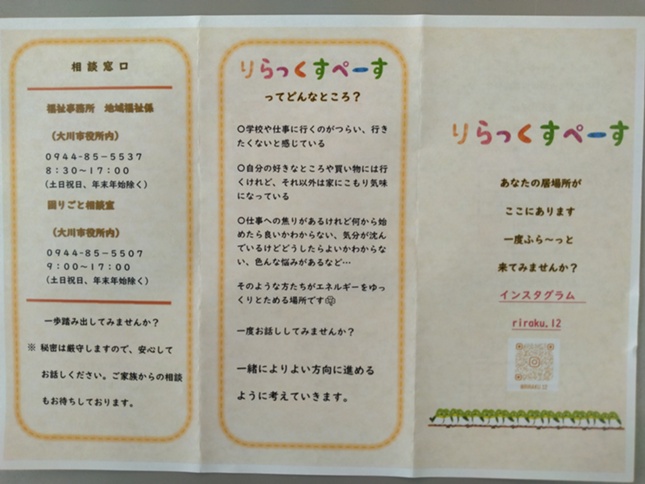 相談窓口
福祉事務所 地域福祉係
（大川市役所内）
０９４４-８５-５５３７
８：３０～１７：００
（土日祝日、年末年始除く）
困りごと相談室
（大川市役所内）
０９４４-８５-５５０７
９：００～１７：００
（土日祝日、年末年始除く）
一歩踏み出してみませんか？
※ 秘密は厳守しますので、安心して
お話しください。ご家族からの相談
もお待ちしております。
りらっくすぺーす
ってどんなところ？
〇学校や仕事に行くのがつらい、行き
たくないと感じている
〇自分の好きなところや買い物には行
くけれど、それ以外は家にこもり気味
になっている
〇仕事への焦りがあるけれど何から始
めたら良いかわからない、気分が沈ん
でいるけどどうしたらよいかわからな
い、色んな悩みがあるなど…
そのような方たちがエネルギーをゆっ
くりとためる場所です
一度お話ししてみませんか？
一緒によりよい方向に進める
ように考えていきます。
りらっくすぺーす
あなたの居場所が
ここにあります
一度ふら～っと
来てみませんか？
インスタグラム
riraku.12
@RIRAKU.12